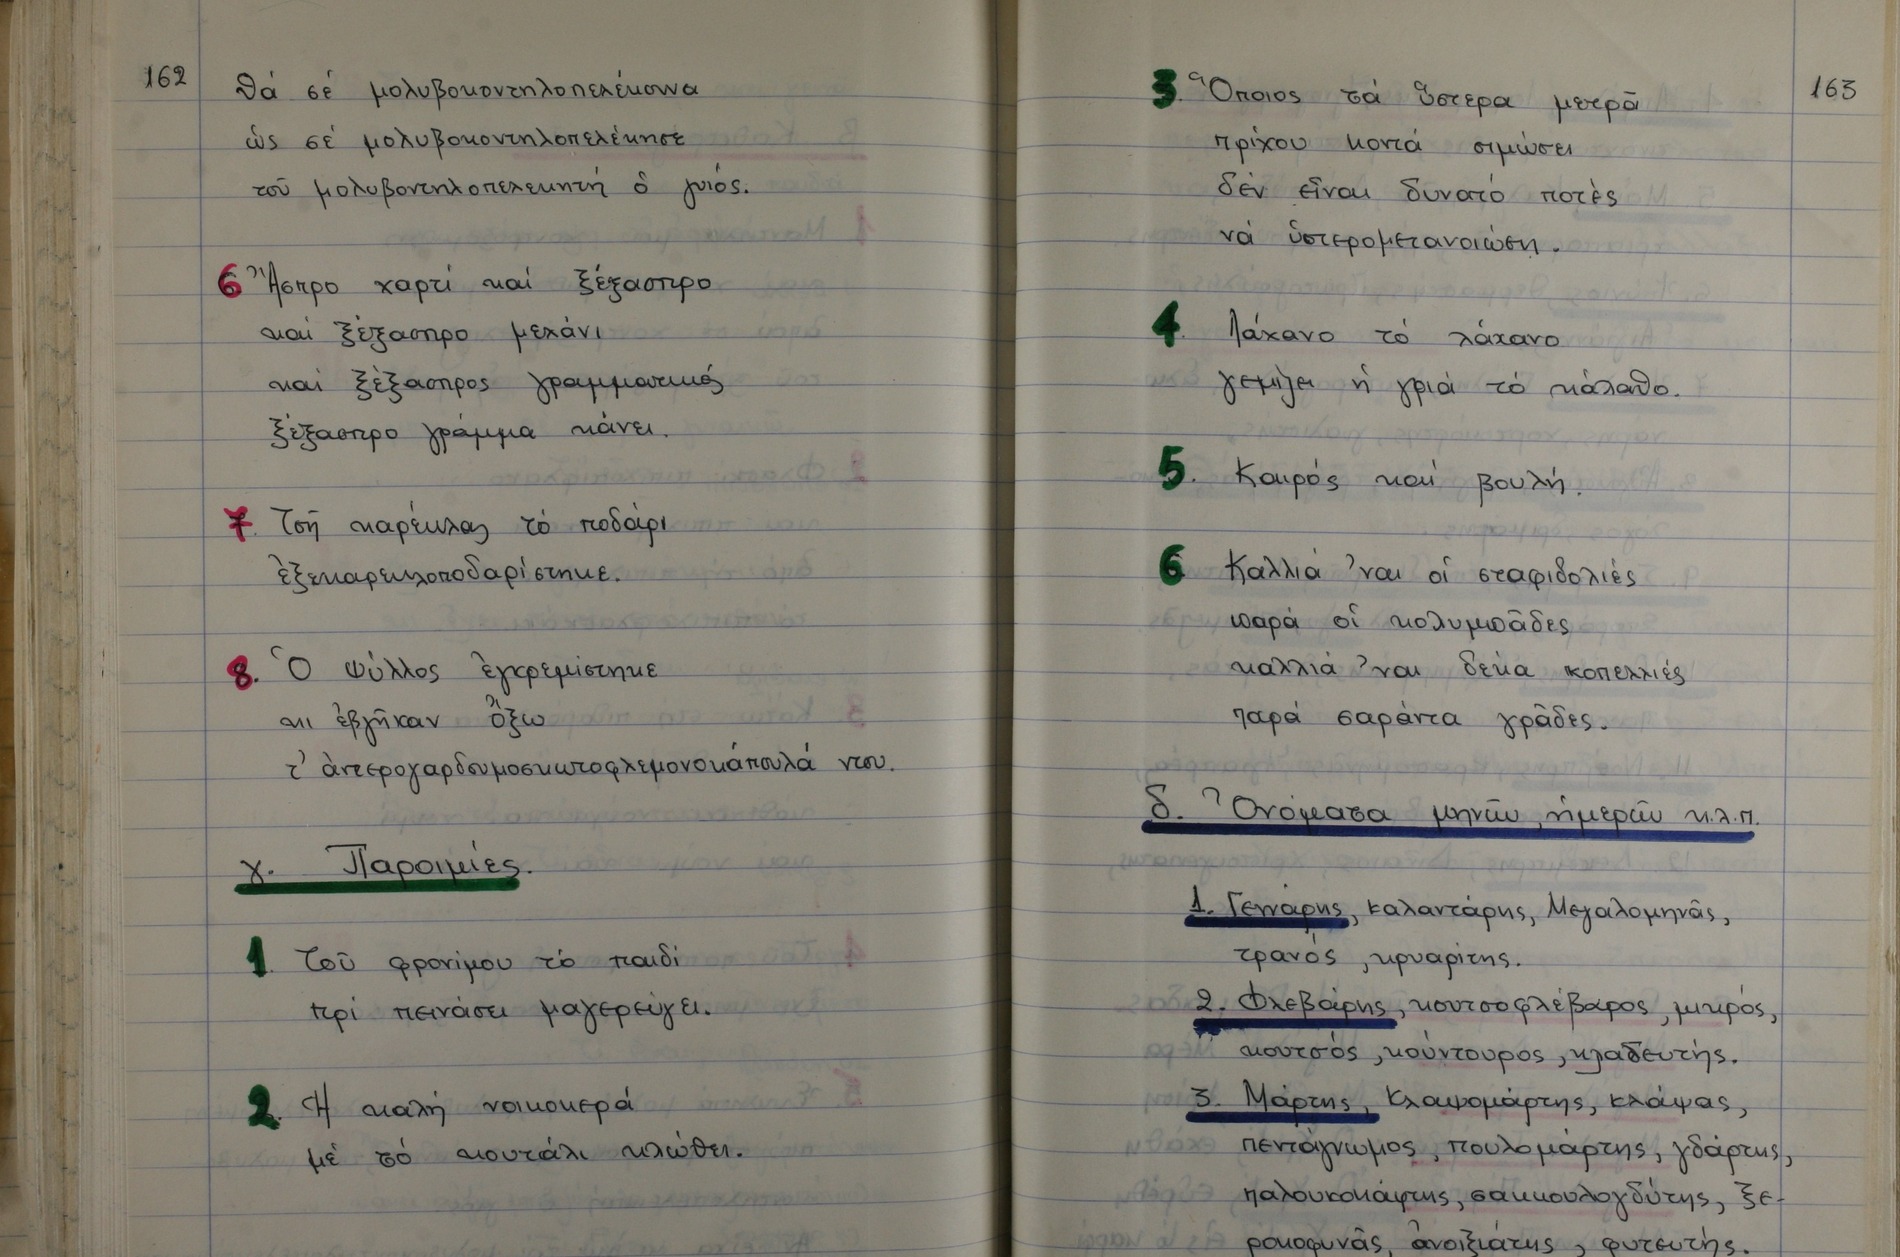 162
θά σέ μολυβοκοντηλοπελέκουνα
ὡς σέ μολυβοκοντηλοπελέκησε
τοῦ μολυβοντηλοπελεκητή ὁ γυιός.
6 Ἄσπρο χαρτί καί ξέξασπρο
καί ξέξασπρο μελάνι
καί ξέξασπρος γραμματικός
ξέξασπρο γράμμα κάνει.
7. Τσῆ καρέκλας τό ποδάρι
ἐξεκαρεκλοποδαρίστηκε.
8. Ὁ ψύλλος ἐγκρεμίστηκε
κι ἐβγῆκαν ὄξω
τ' ἀντερογαρδουμοσκωτοφλεμονοκάπουλά ντου.
γ. Παροιμίες.
1 Τοῦ φρονίμου τό παιδί
πρί πεινάσει μαγερεύγει.
2. Ἡ καλή νοικοκερά
μέ τό κουτάλι κλώθει.
163
3. Ὅποιος τά ὕστερα μετρᾶ
πρίχου κοντά σιμώσει
δέν εἶναι δυνατό ποτές
νά ὑστερομετανοιώση.
4. Λάχανο τό λάχανο
γεμίζει ἡ γριά τό κάλαθο.
5. Καιρός καί βουλή.
6 Καλλιά 'ναι οἱ σταφιδολιές
παρά οἱ κολυμπᾶδες
καλλιά 'ναι δέκα κοπελλιές
παρά σαράντα γρᾶδες.
δ. Ὀνόματα μηνῶν, ἡμερῶν κ.λ.π.
1. Γεννάρης, καλαντάρης, Μεγαλομηνᾶς,
τρανός, κρυαρίτης.
2. Φλεβάρης, κουτσοφλέβαρος, μικρός,
κουτσός, κούντουρος, κλαδευτής.
3. Μάρτης, Κλαψομάρτης, κλάψας,
πεντάγνωμος, πουλομάρτης, γδάρτης,
παλουκοκάφτης, σακκουλογδύτης, ξε-
ροκοφυνᾶς, ἀνοιξιάτης, φυτευτής.